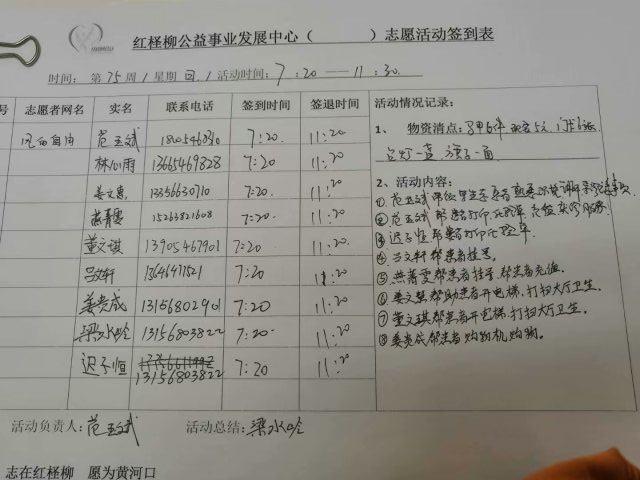 红柽柳公益事业发展中心（ ）志愿活动签到表
时间： 第 75 周 / 星期 四 / 活动时间：7：20 — 11：30
号 志愿者网名 实名 联系电话 签到时间 签退时间 活动情况记录：
风的自由 范玉斌 7:20 11:20
林心雨 13665469828 7:20 11:20
姜文惠 13356630710 7:20 11:20
燕青雯 15263821608 7:20 11:20
董文琪 13905467901 7:20 11:20
吕文轩 7:20 11:20
姜贵成 13156802901 7:20 11:20
梁水吟 13156803822 7:20 11:20
迟子恒 13156803822 7:20 11:20
1、 物资清点：
台灯一盏 旗子一面
2、活动内容：
① 范玉斌
② 范玉斌 帮患者打印
③ 迟子恒帮患者打印
④ 吕文轩帮患者挂号。
⑤ 燕青雯帮患者挂号 帮患者充值。
⑥ 帮助患者开电梯，打扫大厅卫生。
⑦ 董文琪帮患者开电梯，打扫大厅卫生。
⑧ 姜贵成帮患者 购物机购物。
活动负责人：范玉斌 活动总结：梁水吟
志在红柽柳 愿为黄河口